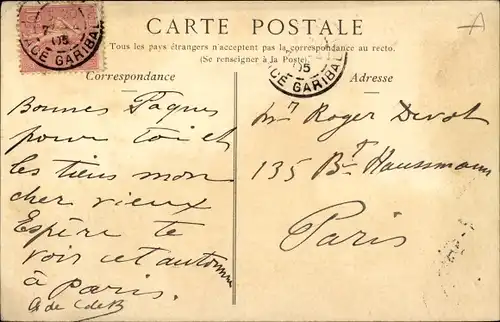 CARTE POSTALE
Tous les pays étrangers n'acceptent pas la correspondance au recto.
(Se renseigner à la Poste)
Correspondance
Adresse
7
05
ACE GARIBAL
05
CE GARIBAL
A
Bonnes Pâques
pour toi et
les tiens mon
cher vieux
Espère te
voir cet automne
à Paris.
G de C de B
Mr Roger Devot
135 Bt Haussmann
Paris